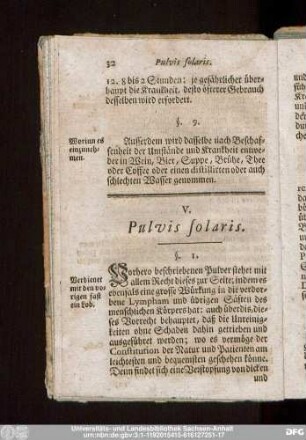 32 Pulvis solaris.
12. 8 bis 2 Stunden; je gefährlicher über-
haupt die Krankheit, desto öfterer Gebrauch
desselben wird erfordert.
§. 9.
Worinn es
einzuneh-
men.
Ausserdem wird dasselbe nach Beschaf-
fenheit der Umstände und Krankheit entwe-
der in Wein, Bier, Suppe, Brühe, Thee
oder Coffee oder einen distillirten oder auch
schlechten Wasser genommen.
V.
Pulvis solaris.
§. 1.
Verdienet
mit den vo-
rigen fast
ein Lob.
Vorhero beschriebenen Pulver stehet mit
allem Recht dieses zur Seite; indem es
ebenfals eine grosse Würkung in die verdor-
bene Lympham und übrigen Säften des
menschlichen Körpers hat: auch überdis die-
ses Vorrecht behauptet, daß die Unreinig-
keiten ohne Schaden dahin getrieben und
ausgeführet werden; wo es vermöge der
Constitution der Natur und Patienten am
leichtesten und bequemsten geschehen könne.
Denn findet sich eine Verstopfung von dicken
und
Universitäts- und Landesbibliothek Sachsen-Anhalt
urn:nbn:de:gbv:3:1-1192015415-616127251-17
DFG